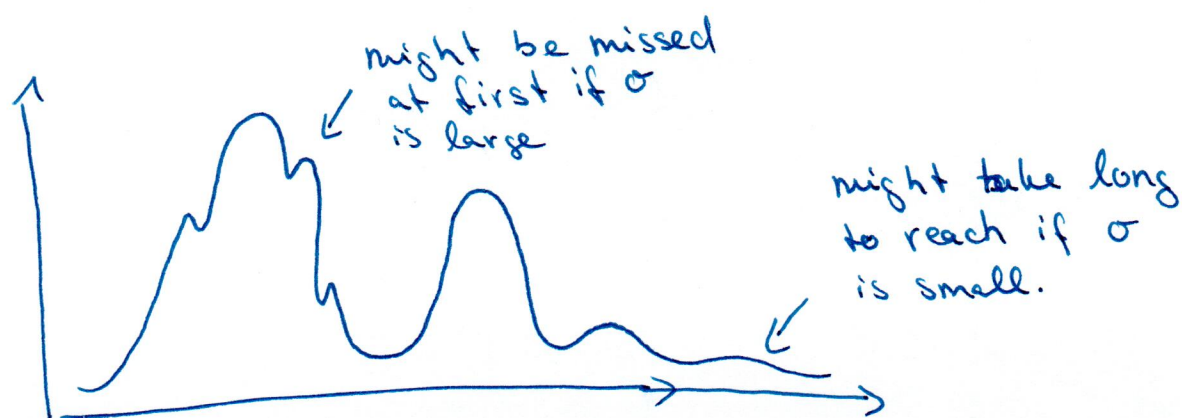 might be missed
at first if σ
is large
might take long
to reach if σ
is small.